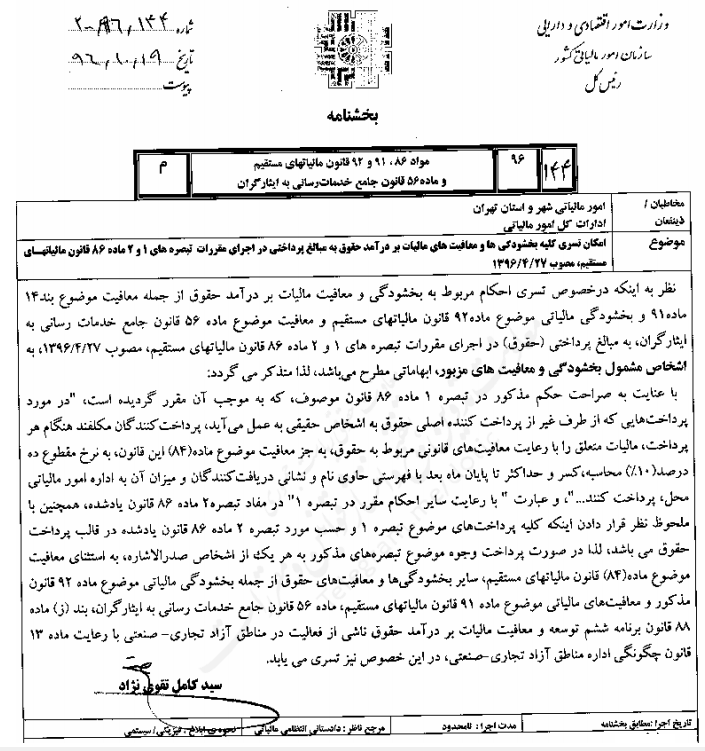 وزارت امور اقتصادی و دارایی
سازمان امور مالیاتی کشور
رئیس کل
شماره
تاریخ ۹۶،۱۰،۱۹
پیوست
بخشنامه
۱۴۴
۹۶
مواد ۸۶ ، ۹۱ و ۹۲ قانون مالیاتهای مستقیم
و ماده ۵۶ قانون جامع خدمات رسانی به ایثارگران
م
مخاطبان /
ذینفعان
امور مالیاتی شهر و استان تهران
ادارات کل امور مالیاتی
موضوع
امکان تسری کلیه بخشودگی ها و معافیت های مالیات بر درآمد حقوق به مبالغ پرداختی در اجرای مقررات تبصره های ۱ و ۲ ماده ۸۶ قانون مالیاتهـای
مستقیم، مصوب ۱۳۹۶/۴/۲۷
نظر به اینکه درخصوص تسری احکام مربوط به بخشودگی و معافیت مالیات بر درآمد حقوق از جمله معافیت موضوع بند۱۴
ماده۹۱ و بخشودگی مالیاتی موضوع ماده۹۲ قانون مالیاتهای مستقیم و معافیت موضوع ماده ۵۶ قانون جامع خدمات رسانی به
ایثارگران، به مبالغ پرداختی (حقوق) در اجرای مقررات تبصره های ۱ و ۲ ماده ۸۶ قانون مالیاتهای مستقیم، مصوب ۱۳۹۶/۴/۲۷، به
اشخاص مشمول بخشودگی و معافیت های مزبور، ابهاماتی مطرح می‌باشد، لذا متذکر می گردد:
با عنایت به صراحت حکم مذکور در تبصره ۱ ماده ۸۶ قانون موصوف، که به موجب آن مقرر گردیده است، "در مورد
پرداخت‌هایی که از طرف غیر از پرداخت کننده اصلی حقوق به اشخاص حقیقی به عمل می‌آید، پرداخت‌کنندگان مکلفند هنگام هر
پرداخت، مالیات متعلق را با رعایت معافیت‌های قانونی مربوط به حقوق، به جز معافیت موضوع ماده(۸۴) این قانون، به نرخ مقطوع ده
درصد(۱۰٪) محاسبه،کسر و حداکثر تا پایان ماه بعد با فهرستی حاوی نام و نشانی دریافت‌کنندگان و میزان آن به اداره امور مالیاتی
محل، پرداخت کنند..."، و عبارت " با رعایت سایر احکام مقرر در تبصره ۱" در مفاد تبصره۲ ماده ۸۶ قانون یادشده، همچنین با
ملحوظ نظر قرار دادن اینکه کلیه پرداخت‌های موضوع تبصره ۱ و حسب مورد تبصره ۲ ماده ۸۶ قانون یادشده در قالب پرداخت
حقوق می باشد، لذا در صورت پرداخت وجوه موضوع تبصره‌های مذکور به هر یک از اشخاص صدرالاشاره، به استثنای معافیت
موضوع ماده(۸۴) قانون مالیاتهای مستقیم، سایر بخشودگی‌ها و معافیت‌های حقوق از جمله بخشودگی مالیاتی موضوع ماده ۹۲ قانون
مذکور و معافیت‌های مالیاتی موضوع ماده ۹۱ قانون مالیاتهای مستقیم، ماده ۵۶ قانون جامع خدمات رسانی به ایثارگران، بند (ز) ماده
۸۸ قانون برنامه ششم توسعه و معافیت مالیات بر درآمد حقوق ناشی از فعالیت در مناطق آزاد تجاری- صنعتی با رعایت ماده ۱۳
قانون چگونگی اداره مناطق آزاد تجاری-صنعتی، در این خصوص نیز تسری می یابد.
سید کامل تقوی نژاد
تاریخ اجرا :مطابق بخشنامه
مدت اجرا : نامحدود
مرجع ناظر : دادستانی انتظامی مالیاتی
نحوه‌ی ابلاغ : فیزیکی/ سیستمی